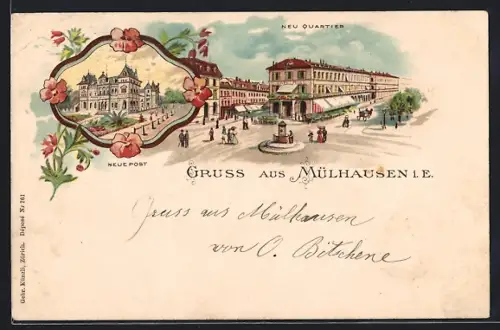 NEU QUARTIER
NEUE POST
GRUSS AUS MÜLHAUSEN I. E.
Gruss aus Mülhausen
von O. Bitschene
Gebr. Künzli, Zürich. Déposé Nr 761